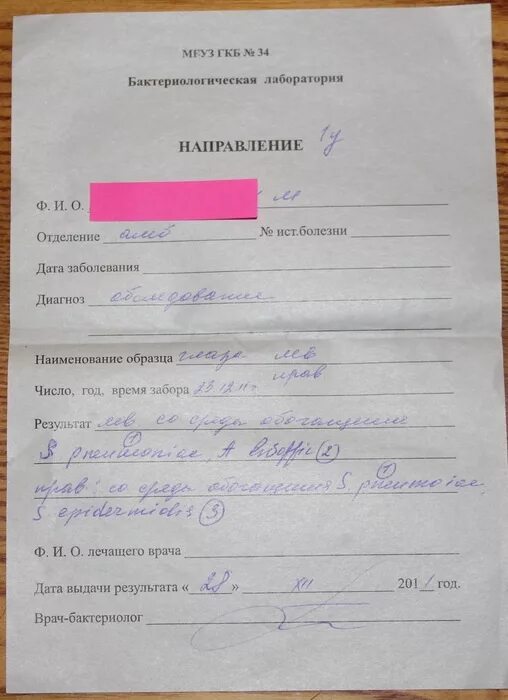 МБУЗ ГКБ № 34
Бактериологическая лаборатория
НАПРАВЛЕНИЕ 1у
Ф. И. О. м
Отделение амб № ист.болезни
Дата заболевания
Диагноз обследование
Наименование образца глаза лев
прав
Число, год, время забора 23.12.11г
Результат лев со среды обогащения
S pneumoniae ①, A ②
прав: со среды обогащения S. pneumoiae ①,
S epidermidis ③
Ф. И. О. лечащего врача
Дата выдачи результата « 28 » XII 2011 год.
Врач-бактериолог